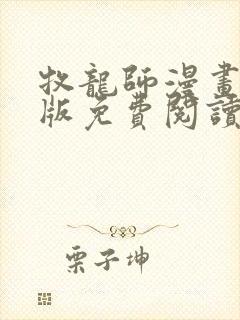 牧龍師漫畫
版免費閱讀
栗子坤